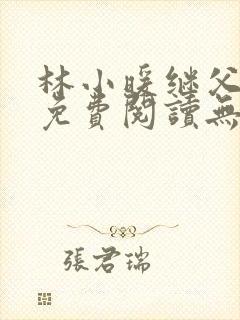 林小暖继父
免費閱讀無
張君瑞